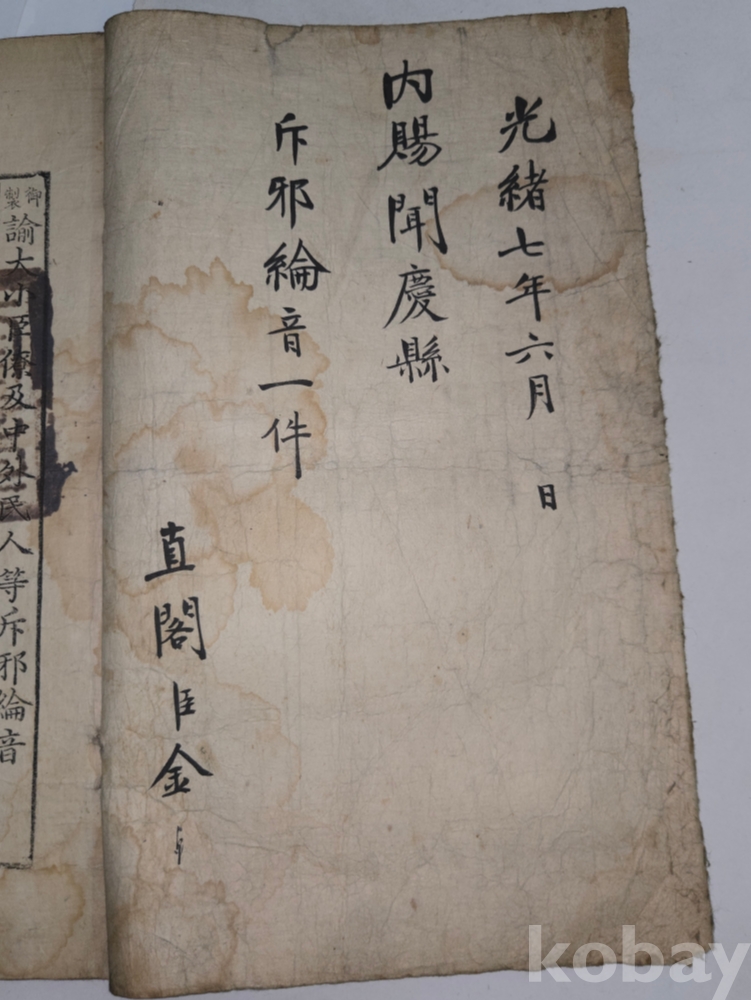 光緖七年六月 日
内賜聞慶縣
斥邪綸音一件
直閣臣金
御製
諭大小臣僚及中外民人等斥邪綸音
kobay